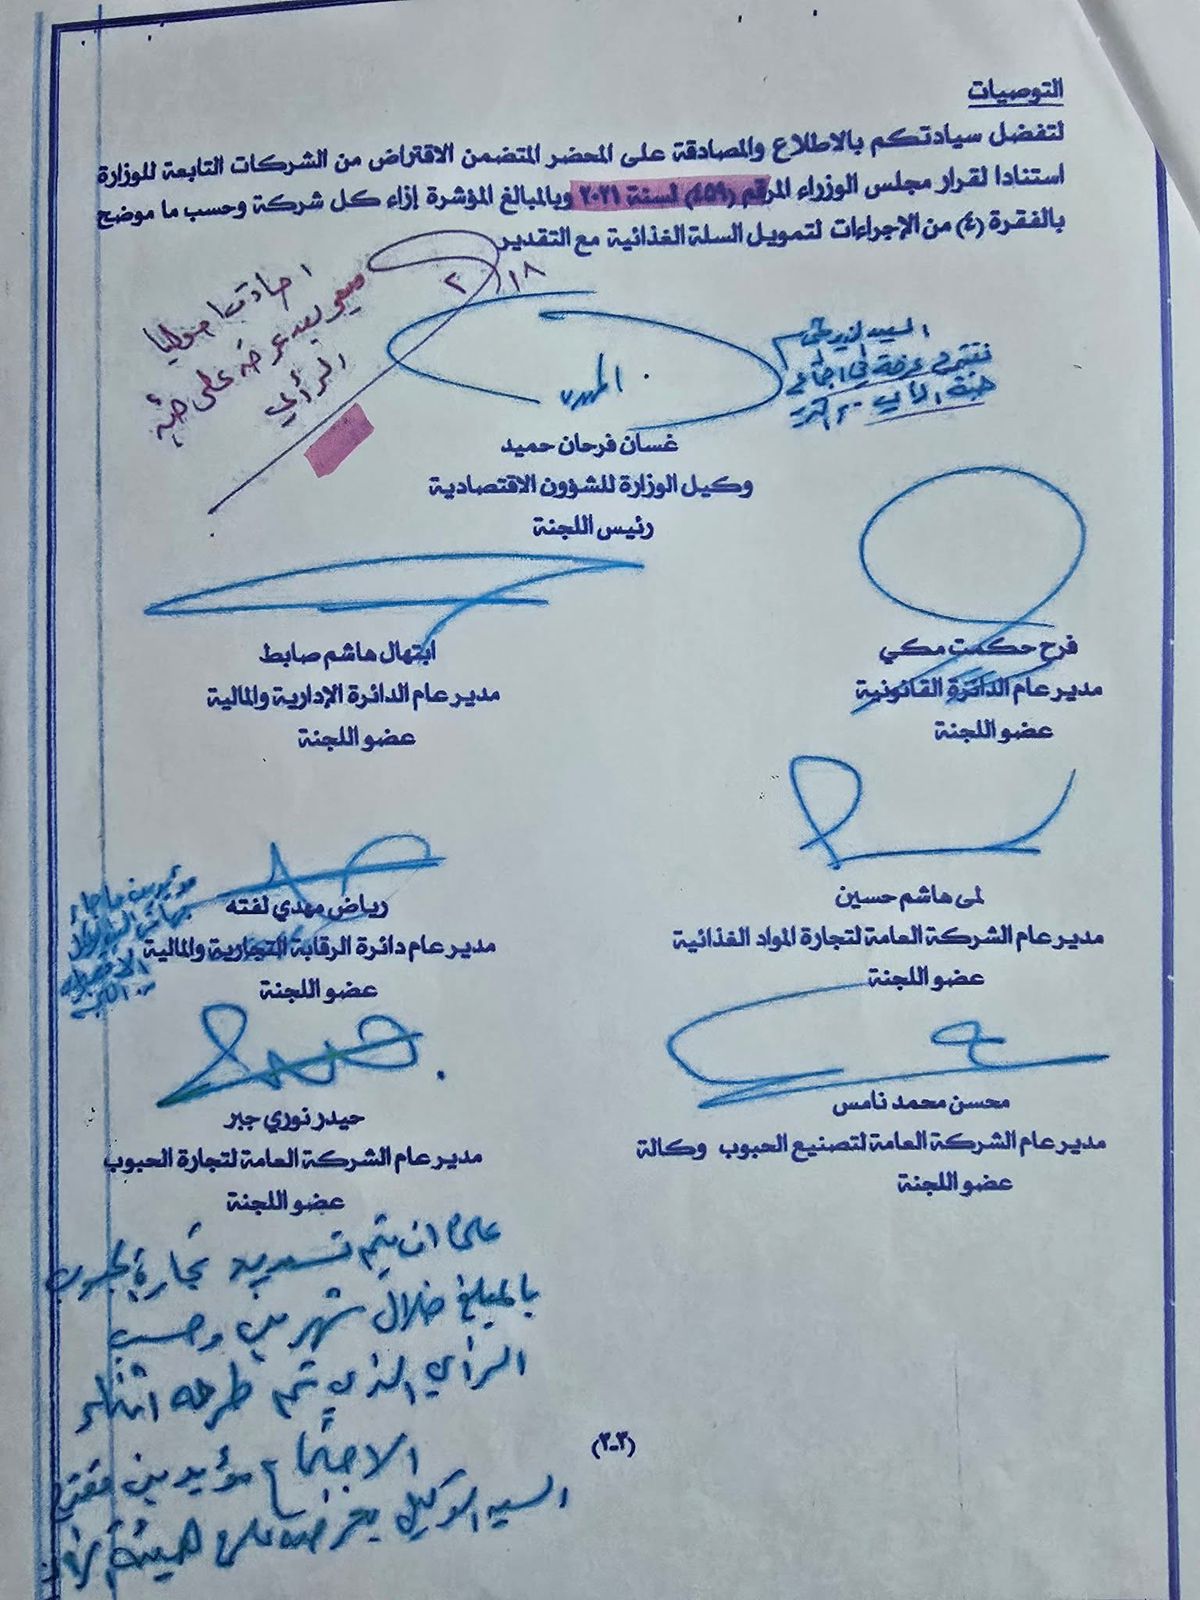 التوصيات
لتفضل سيادتكم بالاطلاع والمصادقة على المحضر المتضمن الاقتراض من الشركات التابعة للوزارة
استنادا لقرار مجلس الوزراء المرقم (٤٥٩) لسنة ٢٠٢١ وبالمبالغ المؤشرة إزاء كل شركة وحسب ما موضح
بالفقرة (٤) من الإجراءات لتمويل السلة الغذائية مع التقدير
٢/١٨
بعد عرضه على هيئة
الرأي
السيد الوزير
نقترح عرضه في اجتماع
هيئة الرأي
غسان فرحان حميد
وكيل الوزارة للشؤون الاقتصادية
رئيس اللجنة
فرح حكمت مكي
مدير عام الدائرة القانونية
عضو اللجنة
ابتهال هاشم صابط
مدير عام الدائرة الإدارية والمالية
عضو اللجنة
لمى هاشم حسين
مدير عام الشركة العامة لتجارة المواد الغذائية
عضو اللجنة
مؤيدين ما جاء
رياض مهدي لفته
مدير عام دائرة الرقابة التجارية والمالية
عضو اللجنة
محسن محمد نامس
مدير عام الشركة العامة لتصنيع الحبوب وكالة
عضو اللجنة
حيدر نوري جبر
مدير عام الشركة العامة لتجارة الحبوب
عضو اللجنة
على ان يتم تسديد تجارة الحبوب
بالمبلغ خلال شهرين وحسب
الرأي الذي تم طرحه اثناء
الاجتماع مؤيدين مقترح
السيد الوكيل بعرضه على هيئة الرأي
(٣-٣)